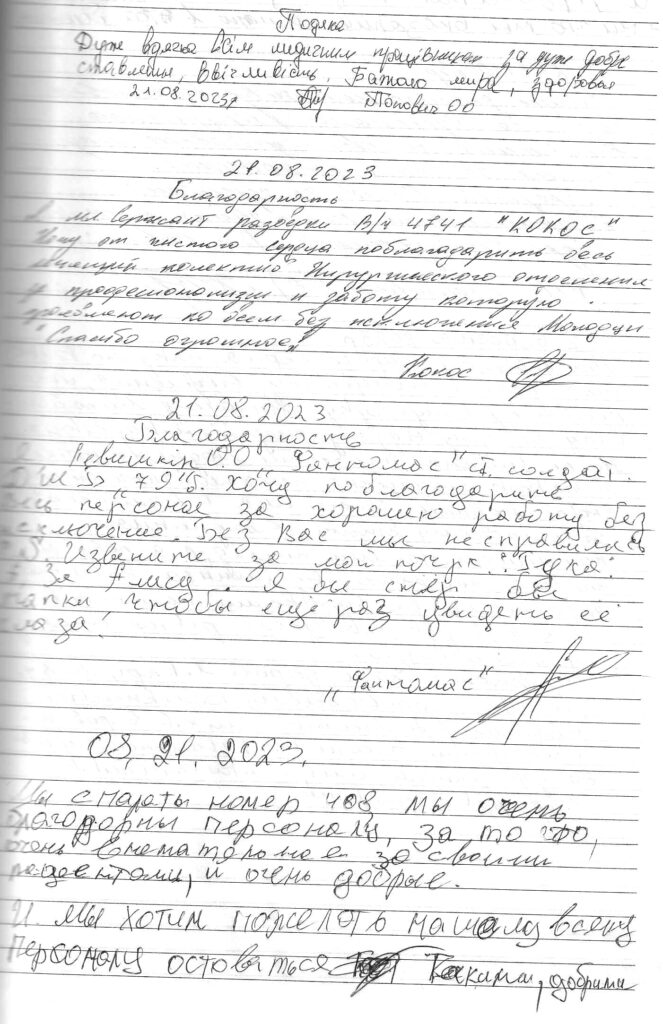 Подяка
Дуже вдячна всім медичним працівникам за дуже добре
ставлення, ввічливість. Бажаю мира, здоровья
21.08.2023р Попович ОО
21.08.2023
Благодарность
мл сержант разведки В/ч 4741 "КОКОС"
Хочу от чистого сердца поблагодарить весь
колектив Хирургического отделения
профессионализм и заботу которую
проявляют ко всем без исключения Молодцы
Спасибо огромное!
Кокос
21.08.2023
Благодарность
Я О.О. "Фантомас" ст. солдат.
79 хочу поблагодарить
весь персонал за хорошею работу без
исключение. Без Вас мы не справились
P.S. Извените за мой почрк.
За Алису. Я бы стёр бы
тапки, чтобы ещё раз увидеть её
глаза!
„Фантомас"
08, 21. 2023.
Мы с палаты номер 408, мы очень
благодорны персоналу, за то что,
очень внемательное за своими
пацентами, и очень добрые.
И мы хотим пожелать нашому всему
персоналу остоваться Такими, добрими